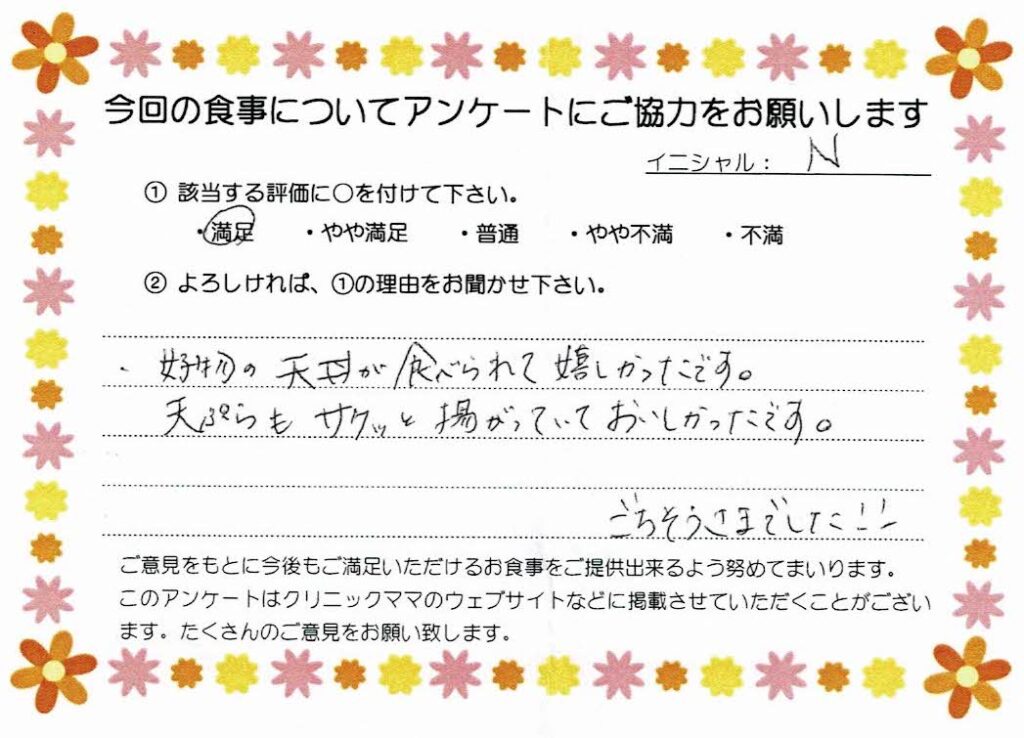 今回の食事についてアンケートにご協力をお願いします
イニシャル： N
① 該当する評価に○を付けて下さい。
・満足 ・やや満足 ・普通 ・やや不満 ・不満
② よろしければ、①の理由をお聞かせ下さい。
・好物の天丼が食べられて嬉しかったです。
天ぷらもサクッと揚がっていておいしかったです。
ごちそうさまでした!!
ご意見をもとに今後もご満足いただけるお食事をご提供出来るよう努めてまいります。
このアンケートはクリニックママのウェブサイトなどに掲載させていただくことがござい
ます。たくさんのご意見をお願い致します。